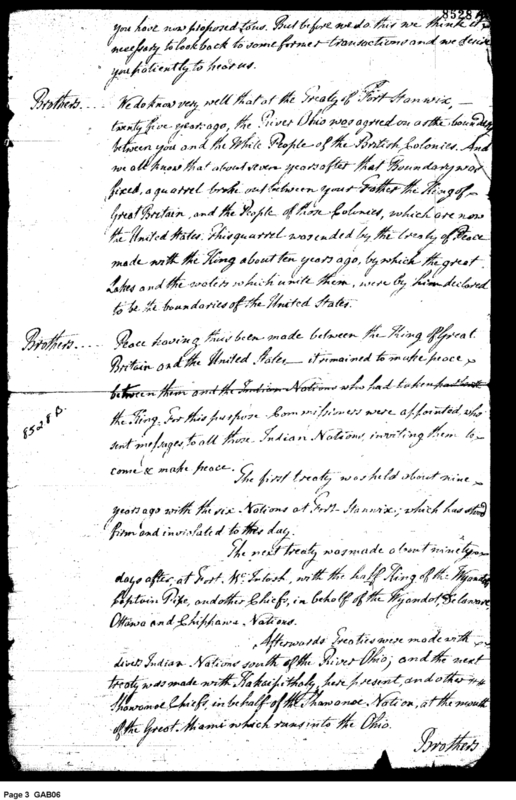 8528
you have now proposed to us. But before we do this we think it
necessary to look back to some former transactions and we desire
you patiently to hear us.
Brothers.... We do know very well that at the Treaty of Fort Stanwix, —
twenty five years ago, the River Ohio was agreed on as the boundary
between you and the White People of the British Colonies. And
we all know that about seven years after that Boundary was
fixed, a quarrel broke out between your Father the King of
Great Britain, and the People of those Colonies, which are now
the United States. This quarrel was ended by the treaty of Peace
made with the King about ten years ago, by which the great
Lakes and the waters which unite them, were by him declared
to be the boundaries of the United States.
Brothers.... Peace having thus been made between the King of Great
Britain and the United States — it remained to make peace
between them and the Indian Nations who had taken part with
8528 B.
the King. For this purpose Commissioners were appointed, who
sent messages to all those Indian Nations, inviting them to
come & make peace.
The first treaty was held about nine
years ago with the six Nations at Fort Stanwix, which has stood
firm and inviolated to this day.
The next treaty was made about ninety
days after, at Fort McIntosh, with the half King of the Wyandots
Captain Pipe, and other Chiefs, in behalf of the Wyandot, Delaware
Ottawa and Chippawa Nations.
Afterwards Treaties were made with
divers Indian Nations south of the River Ohio; and the next
treaty was made with Kakaipilathy, here present, and other
Shawanoe Chiefs, in behalf of the Shawanoe Nation, at the mouth
of the Great Miami which runs into the Ohio.
Brothers
Page 3 GAB06